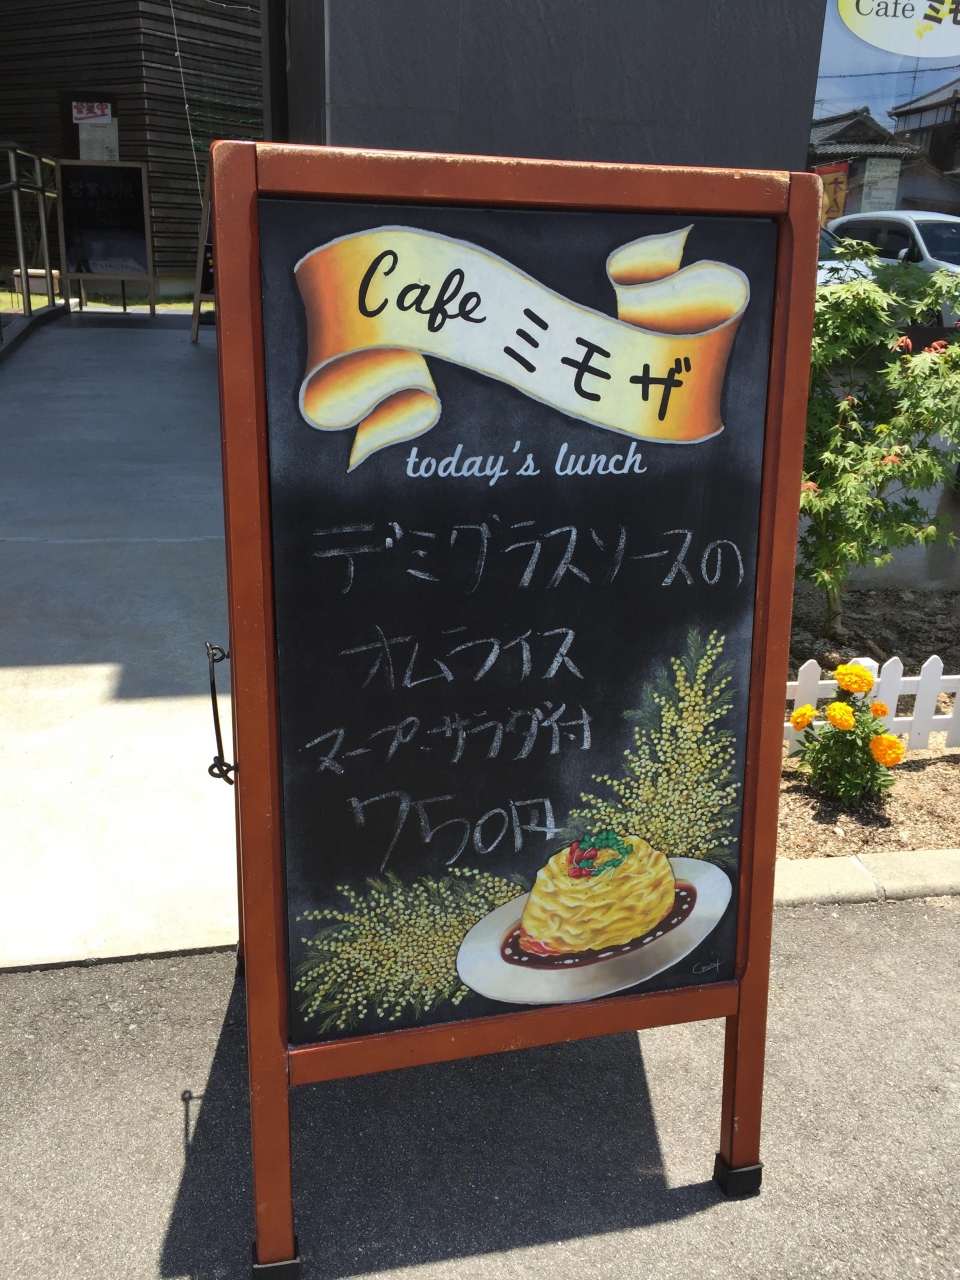 Cafe ミモザ
today's lunch
デミグラスソースの
オムライス
スープ・サラダ付
750円
Café ミモ
営業中